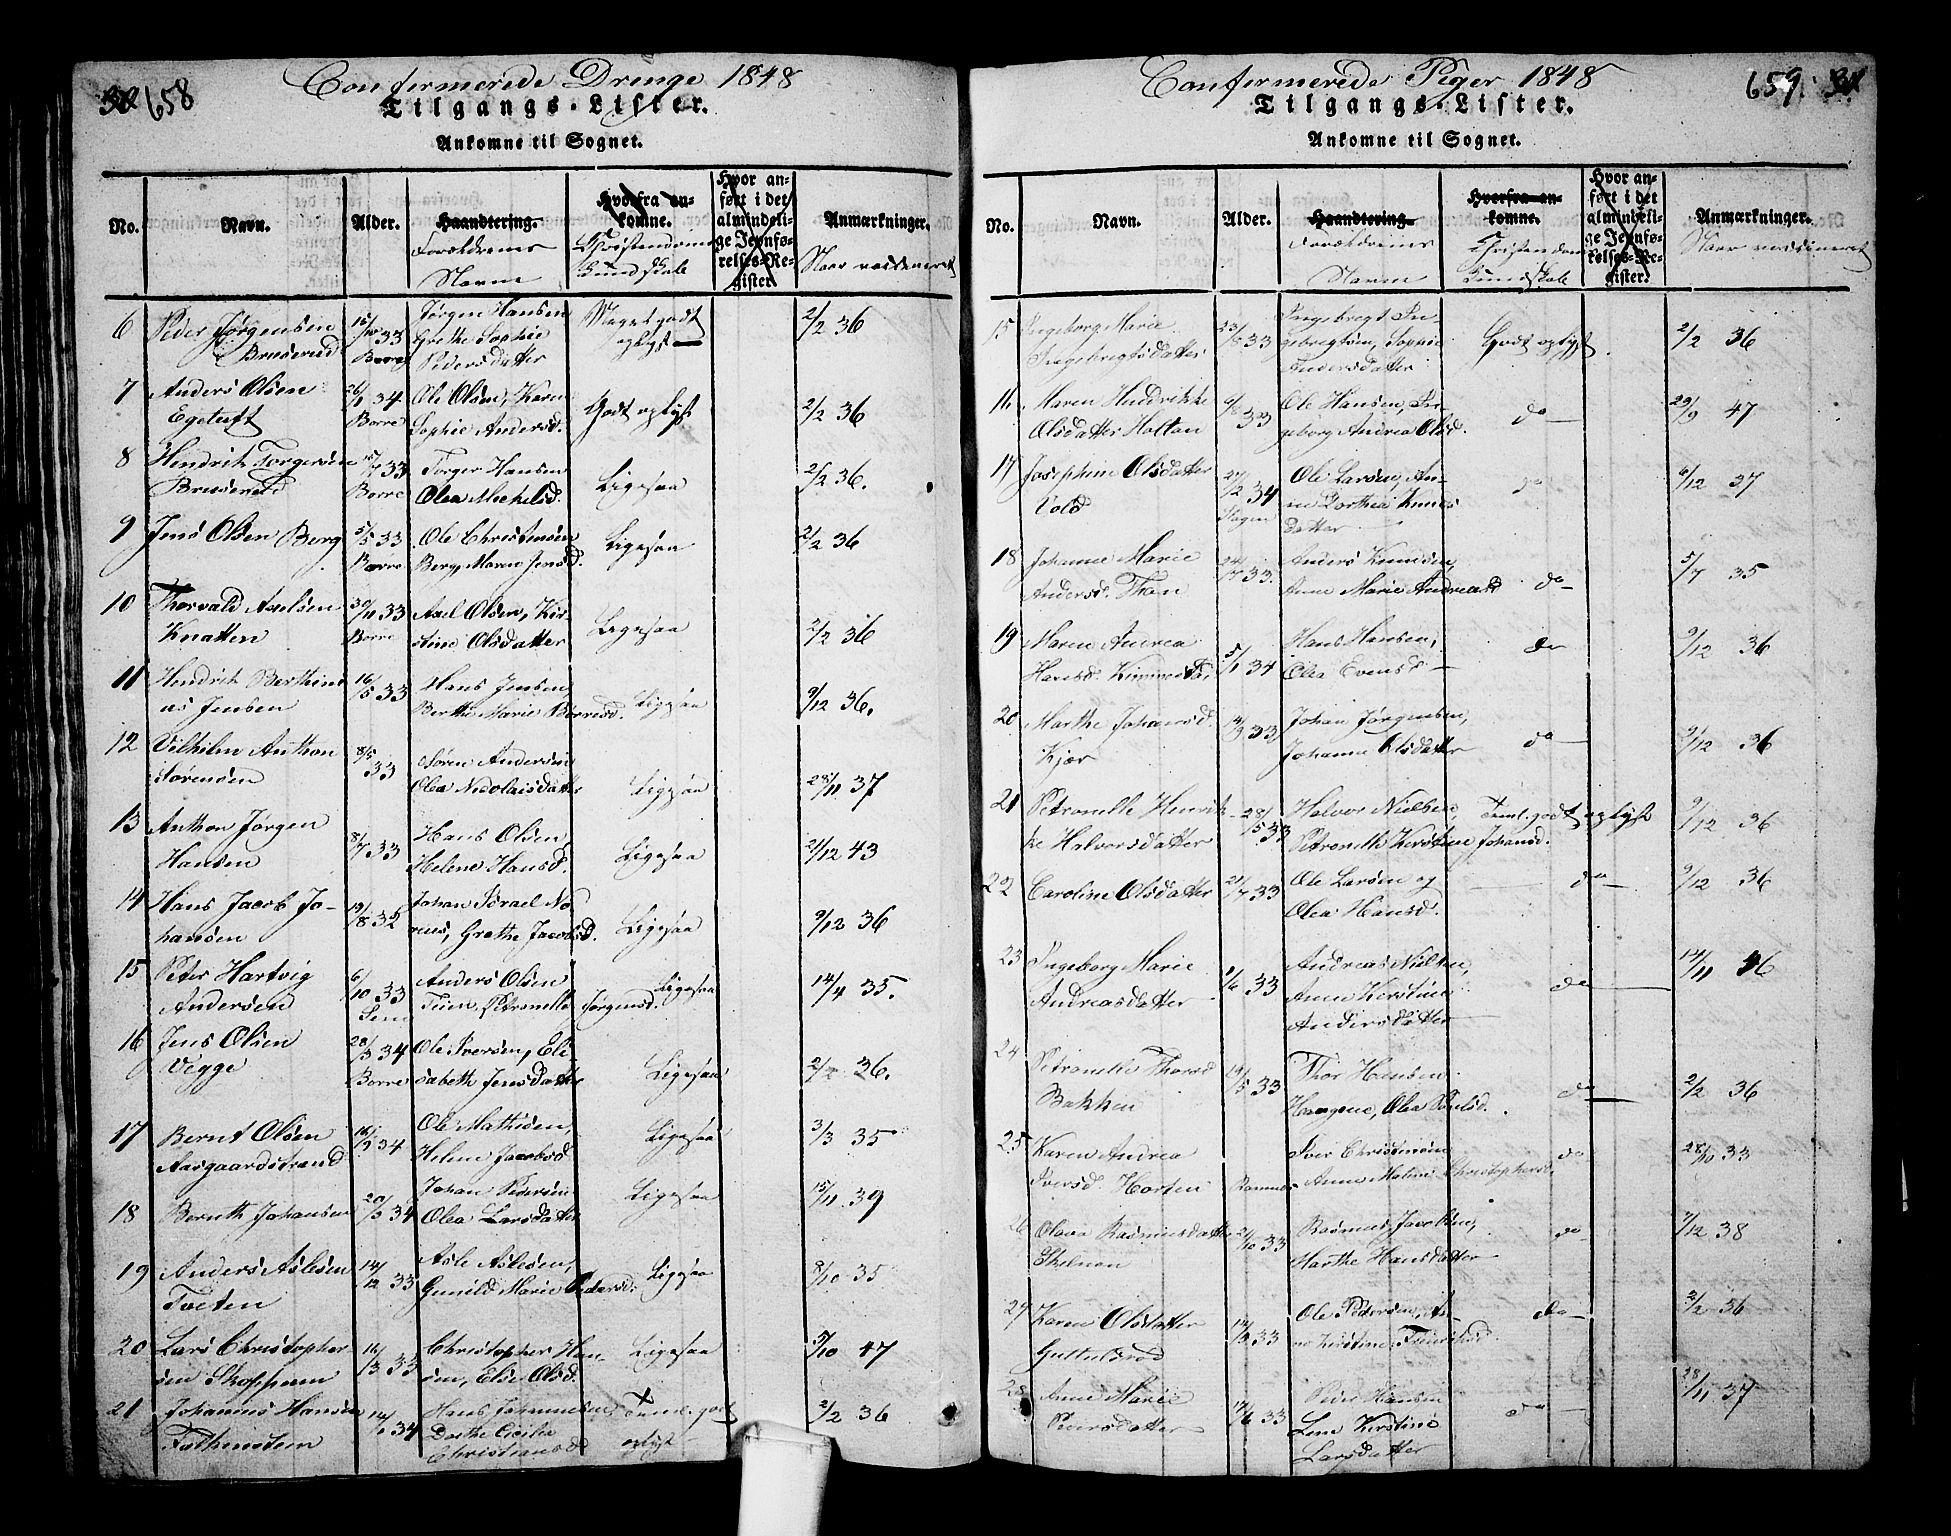 658
Confirmerede Drenge 1848
Tilgangs-Lister.
Ankomne til Sognet.
No. Navn. Alder. Haandtering. Forældrenes Navne Hvorfra ankomne. Christendoms Kundskab Hvor anført i det almindelige Jevnførelses-Register Anmærkninger. Naar vaccineret
6 Peder Jørgensen Jørgen Hansen Meget godt 2/2 36
Bruserud 33 Grethe Sophie oplyst
Borre Pedersdatter
7 Anders Olsen 26/1 34 Ole Olsen, Karen Godt oplyst 2/2 36
Borre Sophie Andersd.
8 Hendrik Torgersen 33 Torger Hansen Ligesaa 2/2 36.
Bruserud Borre Olea Michelsd.
9 Jens Olsen Berg 5/5 33 Ole Christensen Ligesaa 2/2 36
Borre Berg, Maren Jensd.
10 Thorvald Axelsen 30/11 33 Axel Olsen, Kir- Ligesaa 2/2 36
Knatten Borre stine Olsdatter
11 Hendrik Berthin 16/5 33 Hans Jensen, Ligesaa 9/12 36.
us Jensen Berthe Marie Børresd.
12 Vilhelm Anthon 8/5 33 Søren Andersen Ligesaa 28/11 37
Sørensen Olea Nicolaisdatter
13 Anthon Jørgen 8/7 33 Hans Olsen, Ligesaa 21/12 43
Hansen Helene Hansd.
14 Hans Jacob Jo- 19/8 32 Johan Israel No Ligesaa 9/12 36
hansen reus, Grethe Jacobsd.
15 Peter Hartvig 6/10 33 Anders Olsen Ligesaa 14/4 35.
Andersen Sem Teien, Petronelle Jørgensd.
16 Jens Olsen 28/3 34 Ole Iversen, Eli- Ligesaa 2/2 36.
Vegge Borre sabeth Jensdatter
17 Bernt Olsen 34 Ole Mathisen, Ligesaa 3/3 35
Aasgaardstrand Helene Jacobsd
18 Bernth Johansen 20/3 34 Johan Pedersen Ligesaa 15/11 39
Olea Larsdatter
19 Anders Aslesen 14/12 33 Asle Aslesen, Ligesaa 8/10 35
Tveten Gunild Marie Pedersd.
20 Lars Christopher 16/3 33 Christopher Han- Ligesaa 5/10 47
sen Skoppum sen, Else Olsd.
21 Johannes Hansen 14/1 34 Hans Temml. godt 2/2 36
Dorthe Cicilie oplyst
Christiansd
659.
Confirmerede Piger 1848
Tilgangs-Lister.
Ankomne til Sognet.
No. Navn. Alder. Haandtering. Forældrenes Navne Hvorfra ankomne. Christendoms Kundskab Hvor anført i det almindelige Jevnførelses-Register. Anmærkninger. Naar vaccineret
15 Ingeborg Marie 23/8 33 Ingebregt In- Godt oplyst 2/2 36
Ingebregtsdatter gebregtsen, Sophie
Andersdatter
16 Maren Hendrikke 9/8 33 Ole Hansen, In- do 29/9 47
Olsdatter Holtan geborg Andrea Olsd.
17 Josephine Olsdatter 27/2 34 Ole Larsen, An- do 6/12 37
Vold Slagen ne Dorthea
datter
18 Johanne Marie 24/7 33. Anders Knudsen, do 5/7 35
Andersd. Than Anne Marie Andreasd
19 Maren Andrea 5/1 34 Hans Hansen, do 9/12 36
Hansd. Kimmestad Olea Evensd
20 Marthe Johansd. 33 Johan Jørgensen, do 9/12 36
Kjær Johanne Olsdatter
21 Petronelle Henrik- 28/5 33 Halvor Nielsen, Teml. godt oplyst 9/12 36
ke Halvorsdatter Petronelle Kirstine Johansd.
22 Caroline Olsdatter 21/7 33 Ole Larsen og do 9/12 36
Olea Hansd.
23 Ingeborg Marie 1/6 33 Andreas Nielsen, do 14/11 36
Andreasdatter Anne Kirstine
Andersdatter
24 Petronelle Thorsd 19/5 33 Thor Hansen do 2/2 36
Bakken Haugene, Olea Poulsd.
25 Karen Andrea Iver Christensen do 28/10 33
Iversd. Horten Ramnes Anne Malene Christophersd.
26 Olava Rasmusdatter 21/10 33 Rasmus Jacobsen, do 7/12 38
Marthe Hansdatter
27 Karen Olsdatter 33 Ole Pedersen, An- do 2/2 36
ne Kirstine
28 Anne Marie 17/6 33 Peder Hansen do 28/11 37
Pedersdatter Lene Kirstine
Larsdatter